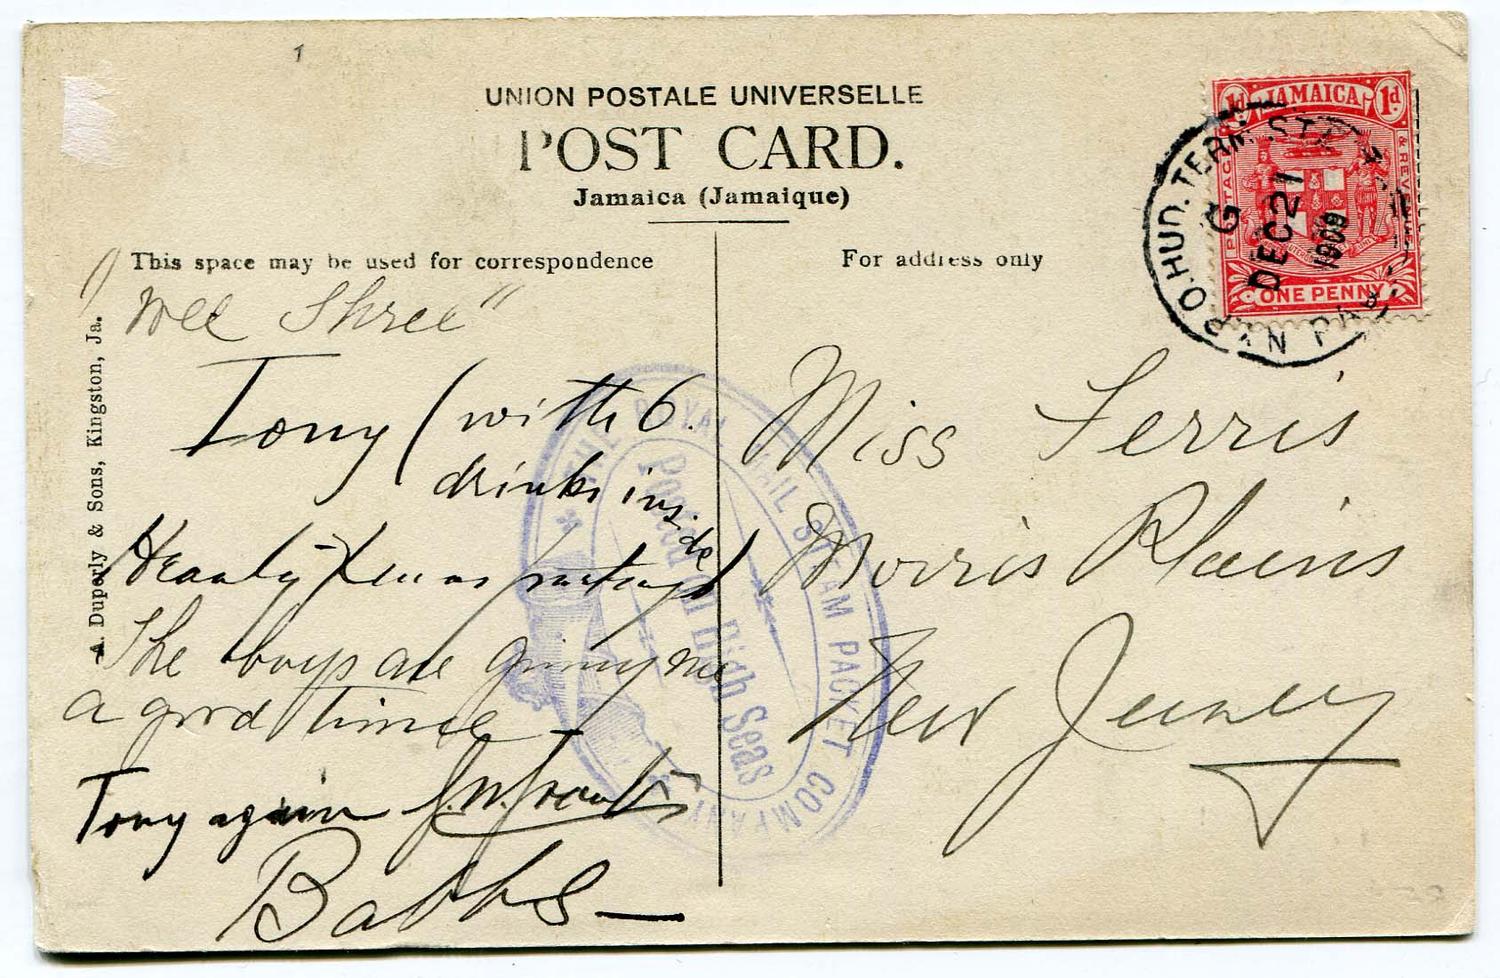 1
UNION POSTALE UNIVERSELLE
POST CARD.
Jamaica (Jamaique)
This space may be used for correspondence
For address only
A. Duperly & Sons, Kingston, Ja.
" Wee Three "
Tony (with 6
drinks inside)
Hearty Xmas
The boys are giving me
a good time
Tony again
Babbs —
Miss Ferris
Morris Plains
New Jersey
JAMAICA
1d 1d
POSTAGE & REVENUE
ONE PENNY
P.O. HUD. TERM. STA.
G
DEC 21
1909
THE ROYAL MAIL STEAM PACKET COMPANY
Posted on High Seas